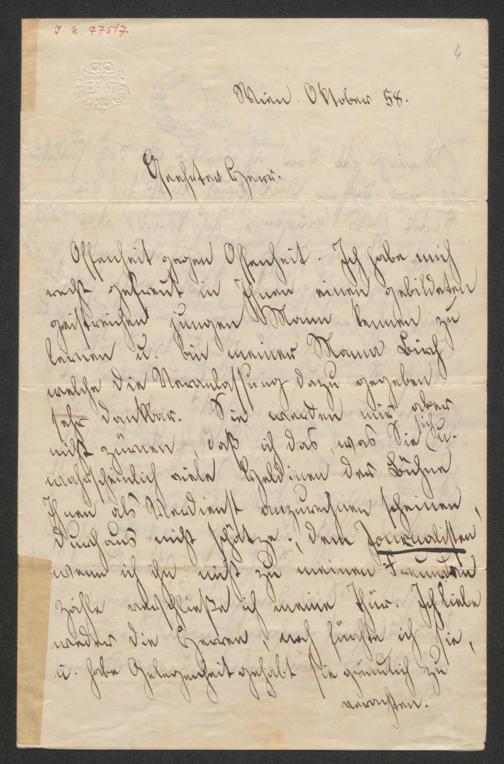 J. N. 77517
4
Wien. Oktober 58.
Geehrter Herr.
Offenheit gegen Offenheit. Ich habe mich
recht gefreut in Ihnen einen gebildeten
geistreichen jungen Mann kennen zu
lernen u. bin meiner Mama Birch
welche die Veranlassung dazu gegeben
sehr dankbar. Sie werden mir aber
nicht zürnen, daß ich das, was Sie sich u.
wahrscheinlich viele Heldinen der Bühne
Ihnen als Verdienst anzurechnen scheinen,
durchaus nicht schätze; dem Journalisten
wenn ich ihn nicht zu meinen Freunden
zähle verschließe ich meine Thür. Ich liebe
weder die Herren, noch fürchte ich sie,
u. habe Gelegenheit gehabt sie gründlich zu
verachten.